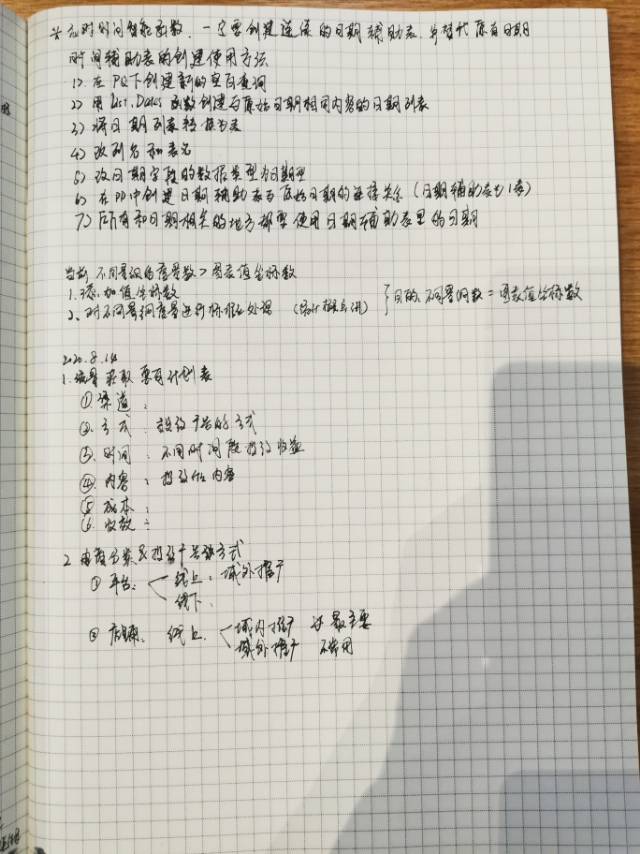 ※应对时间智能函数,一定要创建连续的日期辅助表,并替代原有日期
时间辅助表的创建使用方法
1) 在PQ下创建新的空白查询
2) 用List.Dates函数创建与原始日期相同内容的日期列表
3) 将日期列表转换为表
4) 改列名和表名
5) 改日期字段的数据类型为日期型
6) 在PP中创建日期辅助表与原始日期的连接关系(日期辅助表为1表)
7) 所有和日期相关的地方都要使用日期辅助表里的日期
当 不同量级的度量数>图表值坐标数
1. 添加值坐标数
2、对不同量纲度量进行标准化处理
目的:不同量纲数=图表值坐标数
2020.8.14
1. 流量获取 计划表
① 渠道:
② 方式: 投放广告的方式
③ 时间: 不同时间段投放收益
④ 内容: 投放的内容
⑤ 成本:
⑥ 收效:
2. 投放广告 方式
① 平台: 线上: 域外推广
线下:
② 店铺: 线上: 域内推广 最主要
域外推广 不常用